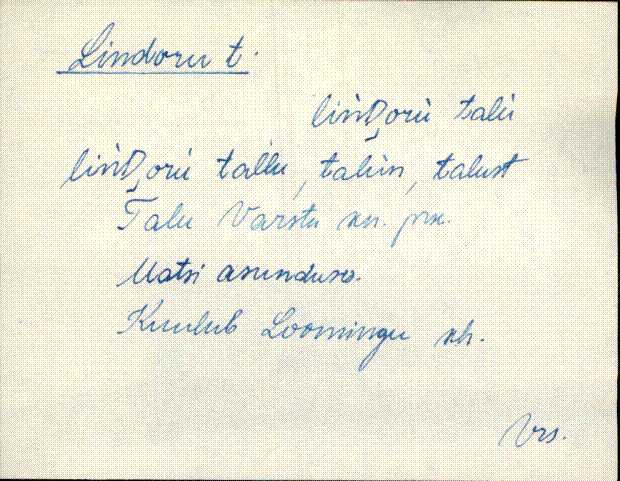 Lindoru t.
lìnᴅorù talù
lìnᴅorù tallu, talùn, talust
Talu Varstu kn. prk.
Matsi asunduses.
Kuulub Loomingu kh.
Vrs.